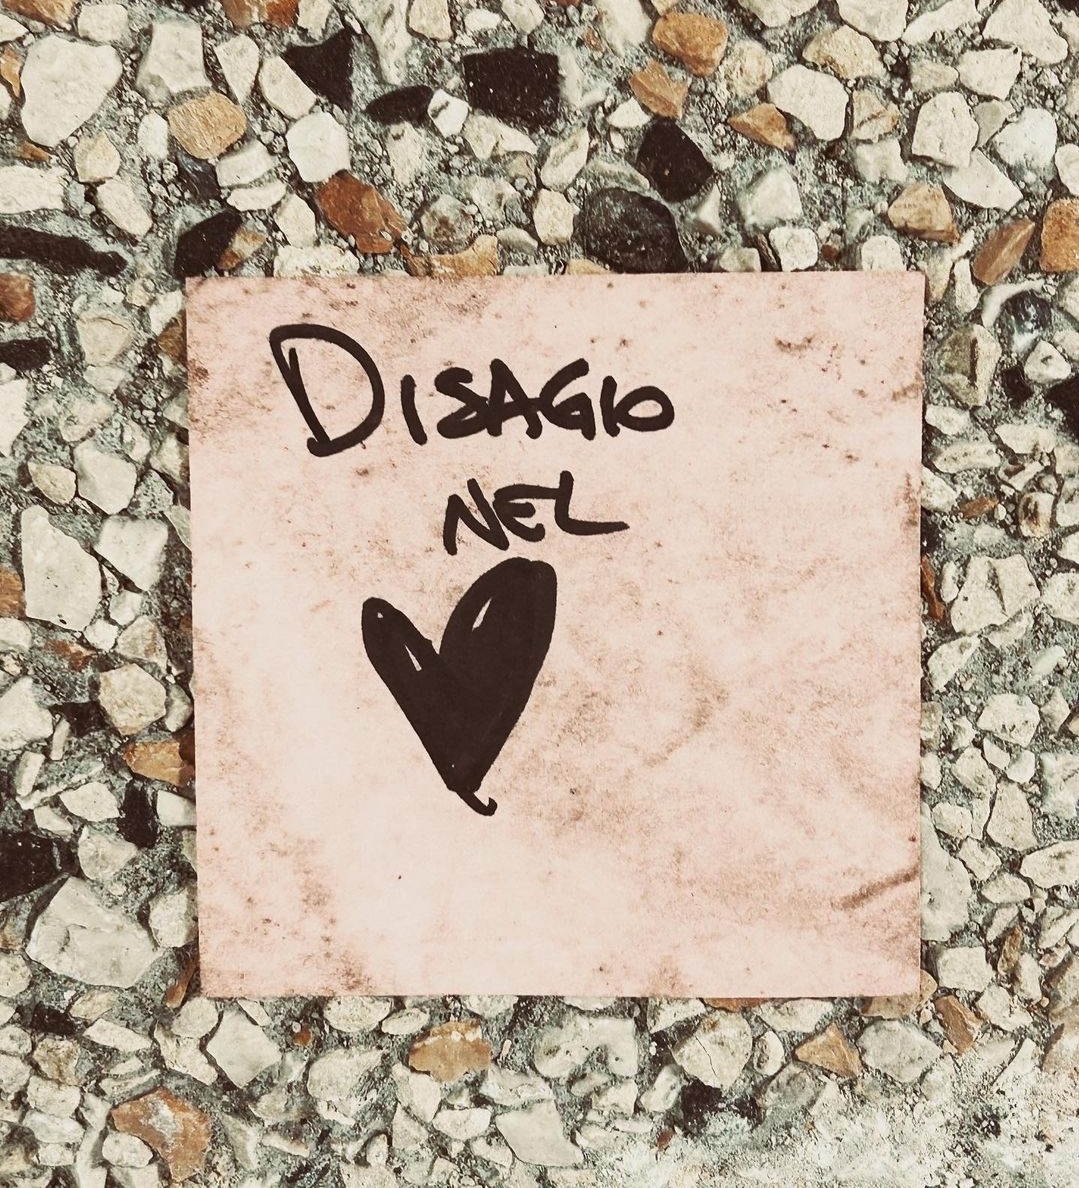 DISAGIO
NEL